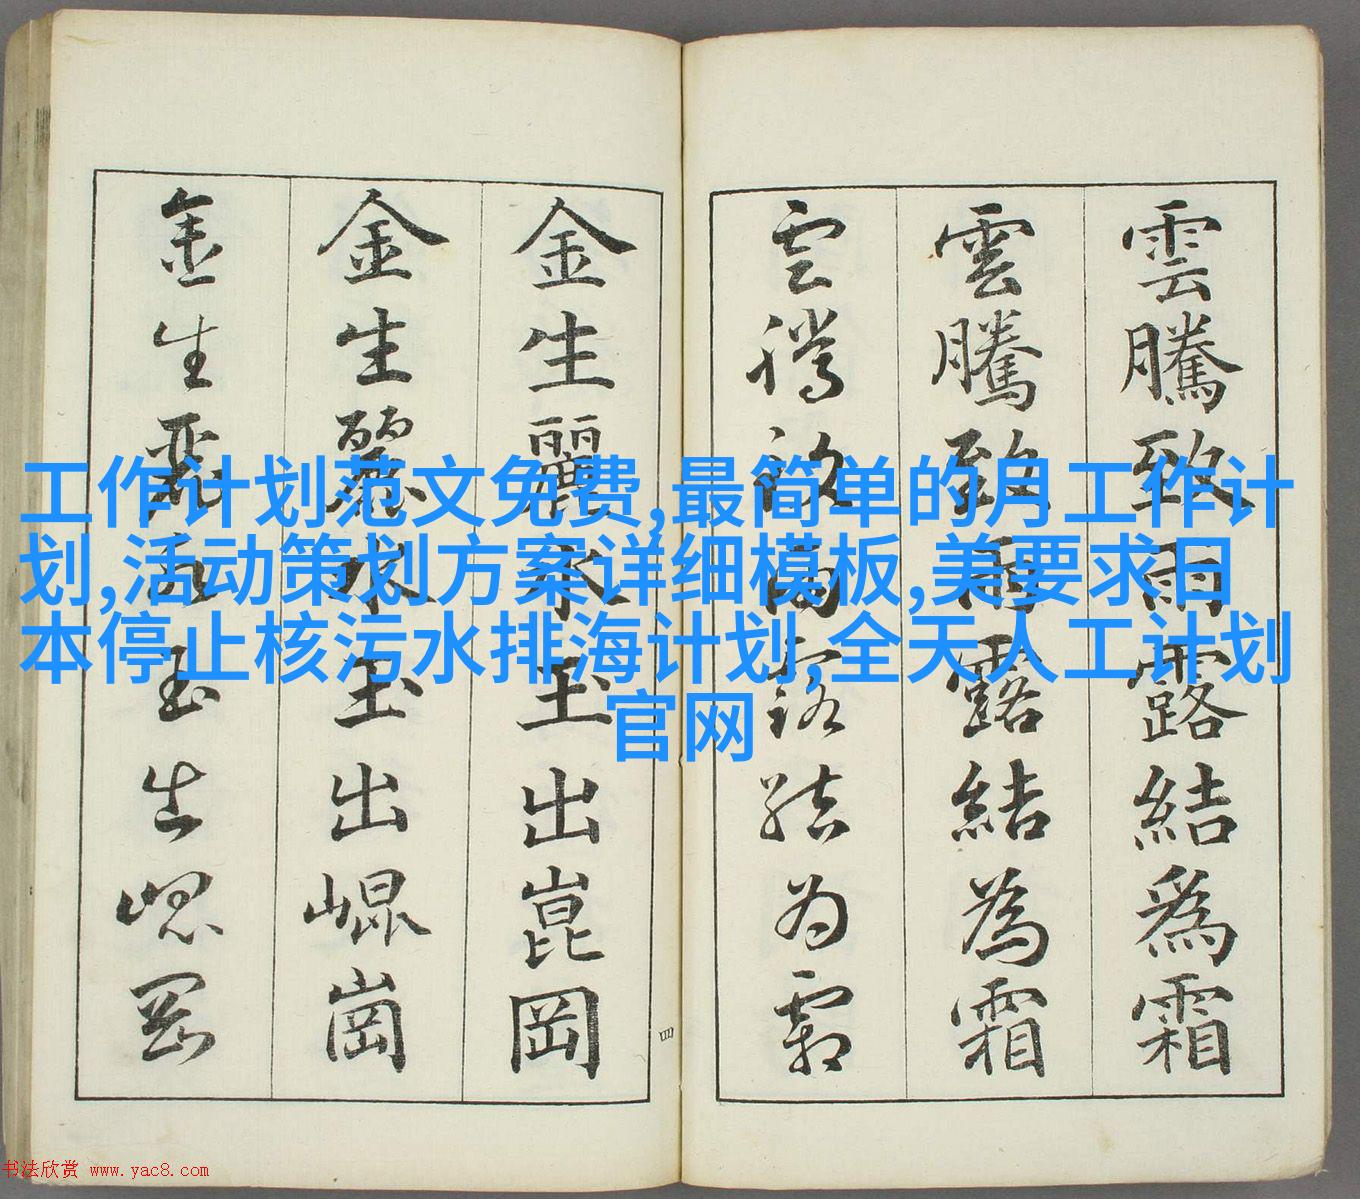 工作计划范文免费,最简单的月工作计
划,活动策划方案详细模板,美要求日
本停止核污水排海计划,全天人工计划
官网
雲騰致雨露結爲霜
雲騰致雨露結為霜
雲騰致雨露結为霜
金生麗水玉出崑岡
金生麗水玉出崐崗
金生麗水玉出崐岡
四
书法欣赏 www.yac8.com